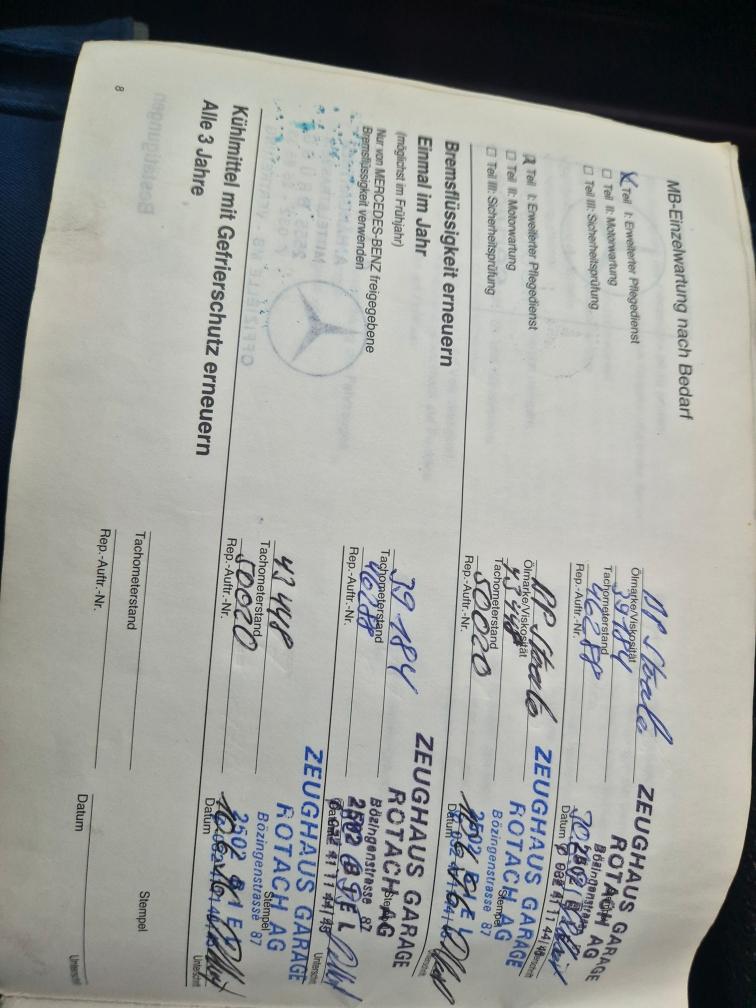 MB-Einzelwartung nach Bedarf
Teil I: Erweiterter Pflegedienst
Teil II: Motorwartung
Teil III: Sicherheitsprüfung
Ölmarke/Viskosität
39184
Tachometerstand
46288
Rep.-Auftr.-Nr.
ZEUGHAUS GARAGE
ROTACH AG
Bözingenstrasse
2502
Datum
032 41 11 44
Teil I: Erweiterter Pflegedienst
Teil II: Motorwartung
Teil III: Sicherheitsprüfung
Ölmarke/Viskosität
43448
Tachometerstand
50020
Rep.-Auftr.-Nr.
ZEUGHAUS GARAGE
ROTACH AG
Stempel
Bözingenstrasse 87
2502 BIEL
Datum
Bremsflüssigkeit erneuern
Einmal im Jahr
(möglichst im Frühjahr)
Nur von MERCEDES-BENZ freigegebene
Bremsflüssigkeit verwenden
39184
Tachometerstand
46288
Rep.-Auftr.-Nr.
ZEUGHAUS GARAGE
ROTACH AG
Bözingenstrasse 87
2502 BIEL
032 41 11 44
Unterschrift
43448
Tachometerstand
50020
Rep.-Auftr.-Nr.
ZEUGHAUS GARAGE
ROTACH AG
Stempel
Bözingenstrasse 87
2502 BIEL
Datum
Unterschrift
Kühlmittel mit Gefrierschutz erneuern
Alle 3 Jahre
Tachometerstand
Rep.-Auftr.-Nr.
Stempel
Datum
Unterschrift
8